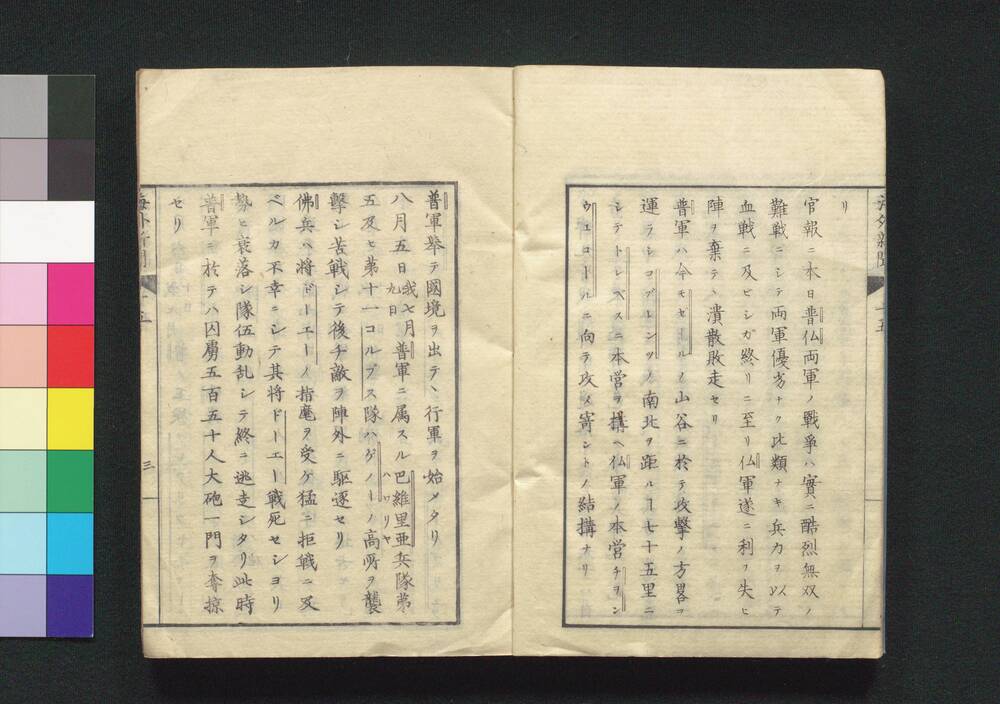 リ
官報ニ本日普仏両軍ノ戰爭ハ實ニ酷烈無双ノ
難戰ニシテ両軍優劣ナク比類ナキ兵力ヲ以テ
血戰ニ及ビシガ終リニ至リ仏軍遂ニ利ヲ失ヒ
陣ヲ棄テ、潰散敗走セリ
普軍ハ今モゼールノ山谷ニ於テ攻擊ノ方畧ヲ
運ラシコブレンツノ南北ヲ距ルー七十五里ニ
シテトレベスニ本営ヲ搆ヘ仏軍ノ本営チヲン
ウェコートルニ向テ攻メ寄ントノ結搆ナリ
普軍擧テ國境ヲ出テ、行軍ヲ始メタリ
八月五日我七月九日普軍ニ属スル巴維里亜兵隊第
バワリヤ
五及ヒ第十一コルプス隊ハゲノーノ高所ヲ襲
擊シ苦戰シテ後チ敵ヲ陣外ニ駆逐セリ
佛兵ハ將ドーエーノ指麾ヲ受ケ猛ニ拒戰ニ及
ベルカ不幸ニシテ其将ドーエー戰死セシヨリ
勢ヒ衰落シ隊伍動乱シテ終ニ逃走シタリ此時
普軍ニ於テハ囚虜五百五十人大砲一門ヲ奪掠
セリ
海外新聞
三